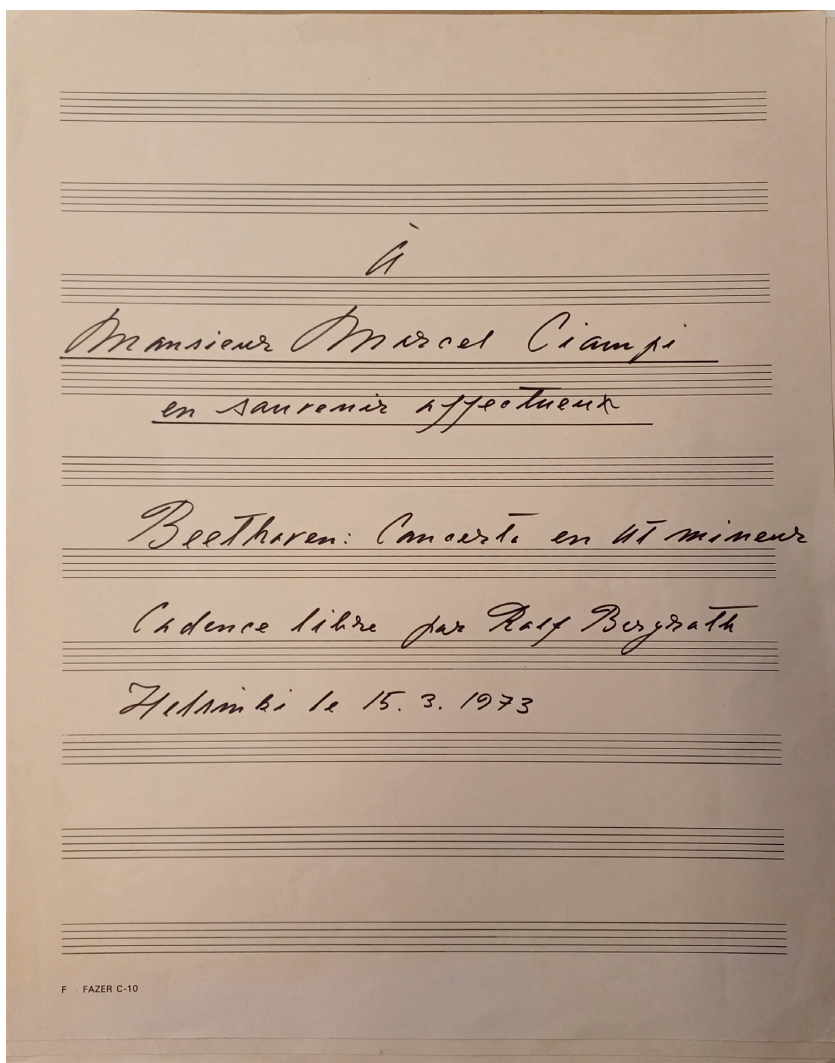 À
Monsieur Marcel Ciampi
en souvenir affectueux
Beethoven: Concerto en ut mineur
Cadence libre par Ralf Bergroth
Helsinki le 15. 3. 1973
F FAZER C-10